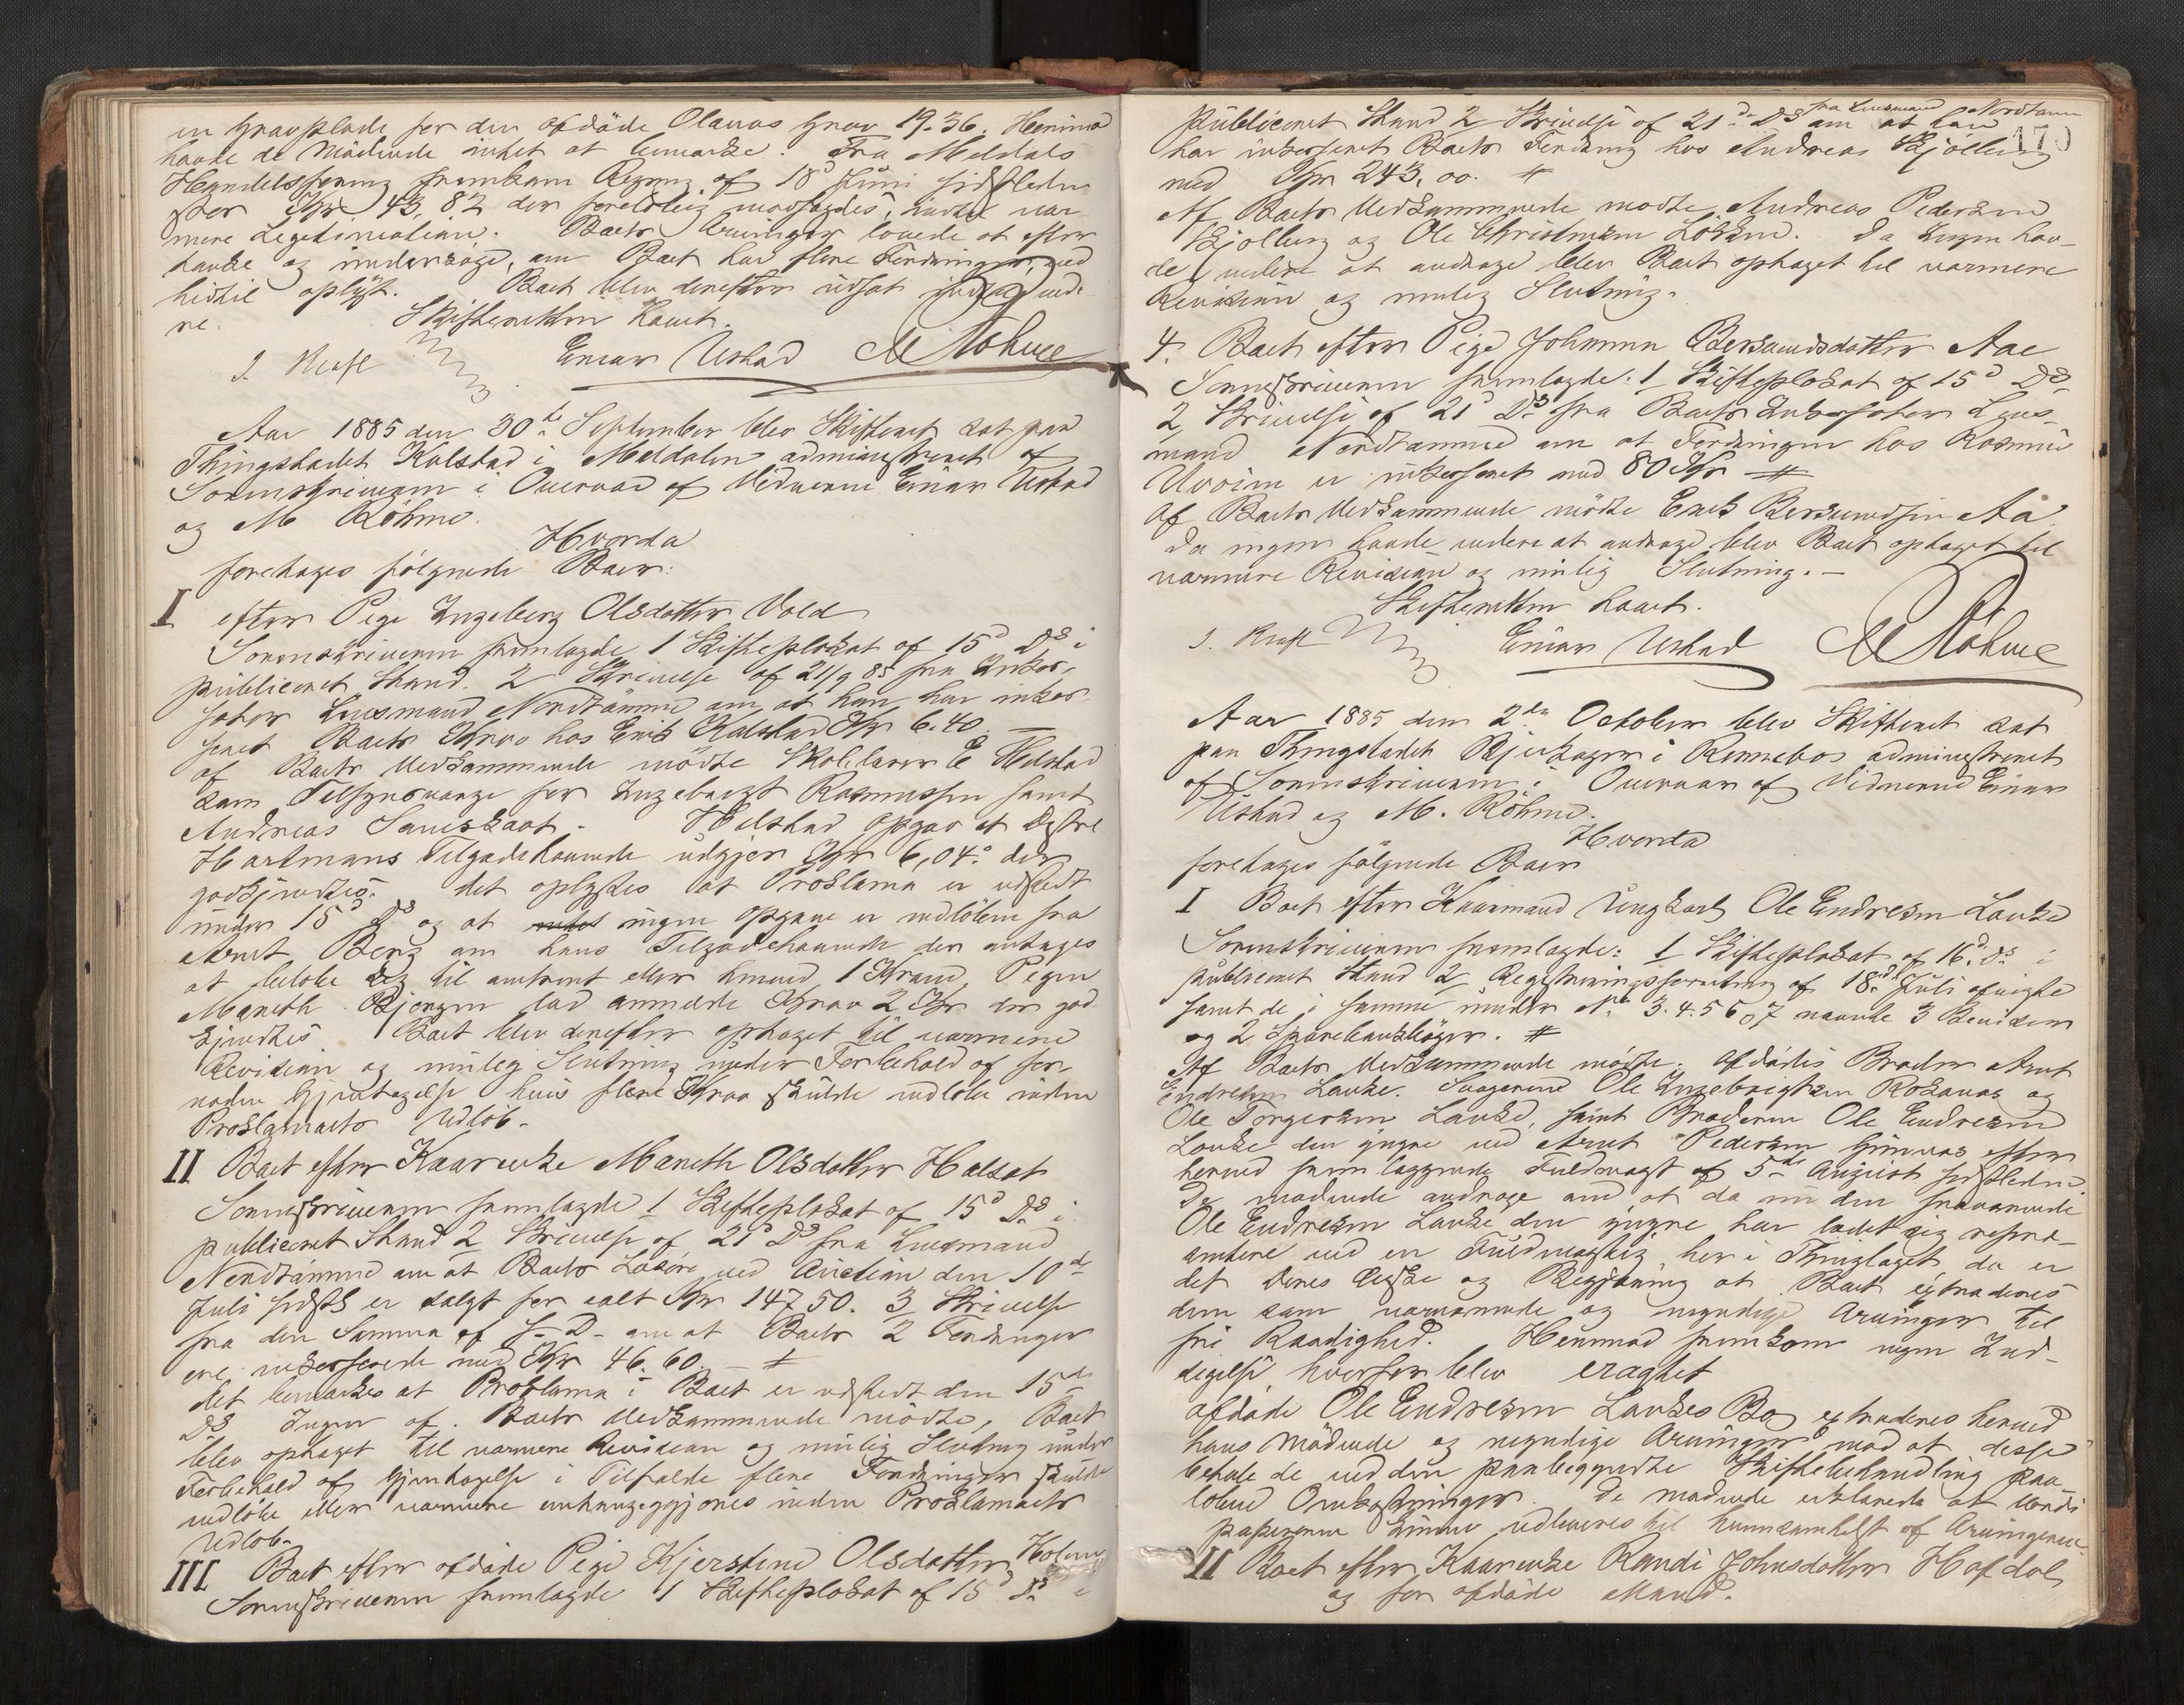 en Gravplads for den afdöde Olavas Grav 19.36. Herimod
havde de Mödende intet at bemærke. Fra Meldals
Handelsforening fremkom Regning af 18d Juni sidstleden
stor Kr 43,82 der foreløbig modsagdes, indtil nær-
mere Legitimation. Boets Arvinger lovede at efter
tænke og undersøge, om Boet har flere Fordringer, end
hidtil oplyst. Boet blev derefter udsat
re. Skifteretten hævet.
J. Kraft Einar Ustad M Röhme
Aar 1885 den 30te September blev Skifteret sat paa
Thingstedet Kalstad i Meldalen administreret af
Sorenskriveren i Overvær af Vidnerne Einar Ustad
og M Röhme.
Hvorda
foretages følgende Boer:
I efter Pige Ingeberg Olsdatter Vold
Sorenskriveren fremlagde 1 Skifteplakat af 15d Ds i
publiceret Stand. 2 Skrivelse af 21/9 85 fra Inkas-
sator Lensmand Nordtømme om at han har inkas-
seret Boets Krav hos Erik Kalstad Kr 6.40. —
af Boets Vedkommende mödte Skolelærer E Helstad
som Tilsynsværge for Ingebregt Rasmussen samt
Andreas Sæverskaat. Helstad opgav at Distr
Hartmans Tilgodehavende udgjør Kr 6,04. der
godkjendtes. det oplystes at Proklama er udstedt
under 15d Ds og at ingen Opgave er indløben fra
Arnt Berg om hans Tilgodehavende der antages
at beløbe sig til omtrent eller henved 1 Krone. Pigen
Mareth Bjerger lod anmelde Krav 2 Kr der god
kjendtes. Boet blev derefter optaget til nærmere
Revision og mulig Slutning under Forbehold af for
noden Gjentagelse hvis flere Krav skulde indløbe inden
Proklamaets Udløb.
II Boet efter Kaarenke Mareth Olsdatter Halsat
Sorenskriveren fremlagde 1 Skifteplakat af 15d Ds i
publiceret Stand 2 Skrivelse af 21d Ds fra Lensmand
Nordtømme om at Boets Løsøre ved Auction den 10de
Juli sidstl er solgt for ialt Kr 147,50. 3 Skrivelse
fra den Samme af S. D. om at Boets 2 Fordringer
ere inkasserede med Kr 46.60. — #
det bemærkes at Proklama i Boet er udstedt den 15de
Ds Ingen af Boets Vedkommende mödte, Boet
blev optaget til nærmere Revision og mulig Slutning under
Forbehold af Gjentagelse i Tilfælde flere Fordringer skulde
indløbe eller nærmere omhandlegjøres inden Proklamaets
Udløb.
III Boet efter afdøde Pige Kjerstine Olsdatter Holum
Sorenskriveren fremlagde 1 Skifteplakat af 15d Ds i
170
publiceret Stand 2 Skrivelse af 21de Ds fra Lensmand Nordtømme om at han
har inkasseret Boets Fordring hos Andreas Skjølberg
med Kr 243,00. #
Af Boets Vedkommende mødte Andreas Pedersen
Skjølberg og Ole Christensen Løkken. Da Ingen hav-
de videre at andrage blev Boet optaget til nærmere
Revision og mulig Slutning.
4. Boet efter Pige Johanna Bersvendsdatter Aae
Sorenskriveren fremlagde: 1 Skifteplakat af 15d Ds
2, Skrivelse af 21d Ds fra Boets Inkassator Lens-
mand Nordtømme om at Fordringen hos Rasmus
Uvoien er inkasseret med 80 Kr #
Af Boets Vedkommende mødte Erik Bersvendsen Aa
Da ingen havde videre at andrage blev Boet optaget til
nærmere Revision og mulig Slutning. —
Skifteretten hævet.
J. Kraft Einar Ustad M Röhme
Aar 1885 den 2den October blev Skifteret sat
paa Thingstedet Bjerkager i Rennebo administreret
af Sorenskriveren i Overvær af Vidnerne Einar
Ustad og M. Röhme.
Hvorda
foretages følgende Boer
I Boet efter Kaarmand Ungkarl Ole Endresen Lauke
Sorenskriveren fremlagde: 1 Skifteplakat af 16d Ds i
publiceret Stand 2 Registreringsforretning af 18de Juli afvigte
samt de i samme under No 3.4.5 6 og 7 nævnte 3 Beviser
og 2 Sparebankbøger. #
Af Boets Vedkommende mødte: afdødes Broder Arnt
Endresen Lauke. Svogerne Ole Ingebrigtsen Rokaunes og
Ole Torgersen Lauke, samt Broderen Ole Endresen
Lauke den yngre ved Arnt Pedersen Gunnes efter
herved fremlæggende Fuldmagt af 5te August sidstleden
De mødende androge om at da nu den fraværende
Ole Endresen Lauke den yngre har ladet sig repræ-
sentere ved en Fuldmægtig her i Thinglaget da er
det deres Ønske og Begjæring at Boet extraderes
dem som nærværende og myndige Arvinger til
fri Raadighed. Herimod fremkom ingen Ind-
sigelse hvorfor blev eragtet
afdøde Ole Endresen Laukes Bo extraderes herved
hans Mødende og myndige Arvinger mod at disse
betale de ved den paabegyndte Skiftebehandling paa-
løbne Omkostninger. De mødende erklærede at Værdi
papirerne kunne udleveres til hvemsomhelst af Arvingerne.
II Boet efter Kaarenke Randi Johnsdatter Hafdal
og før afdøde Mand.